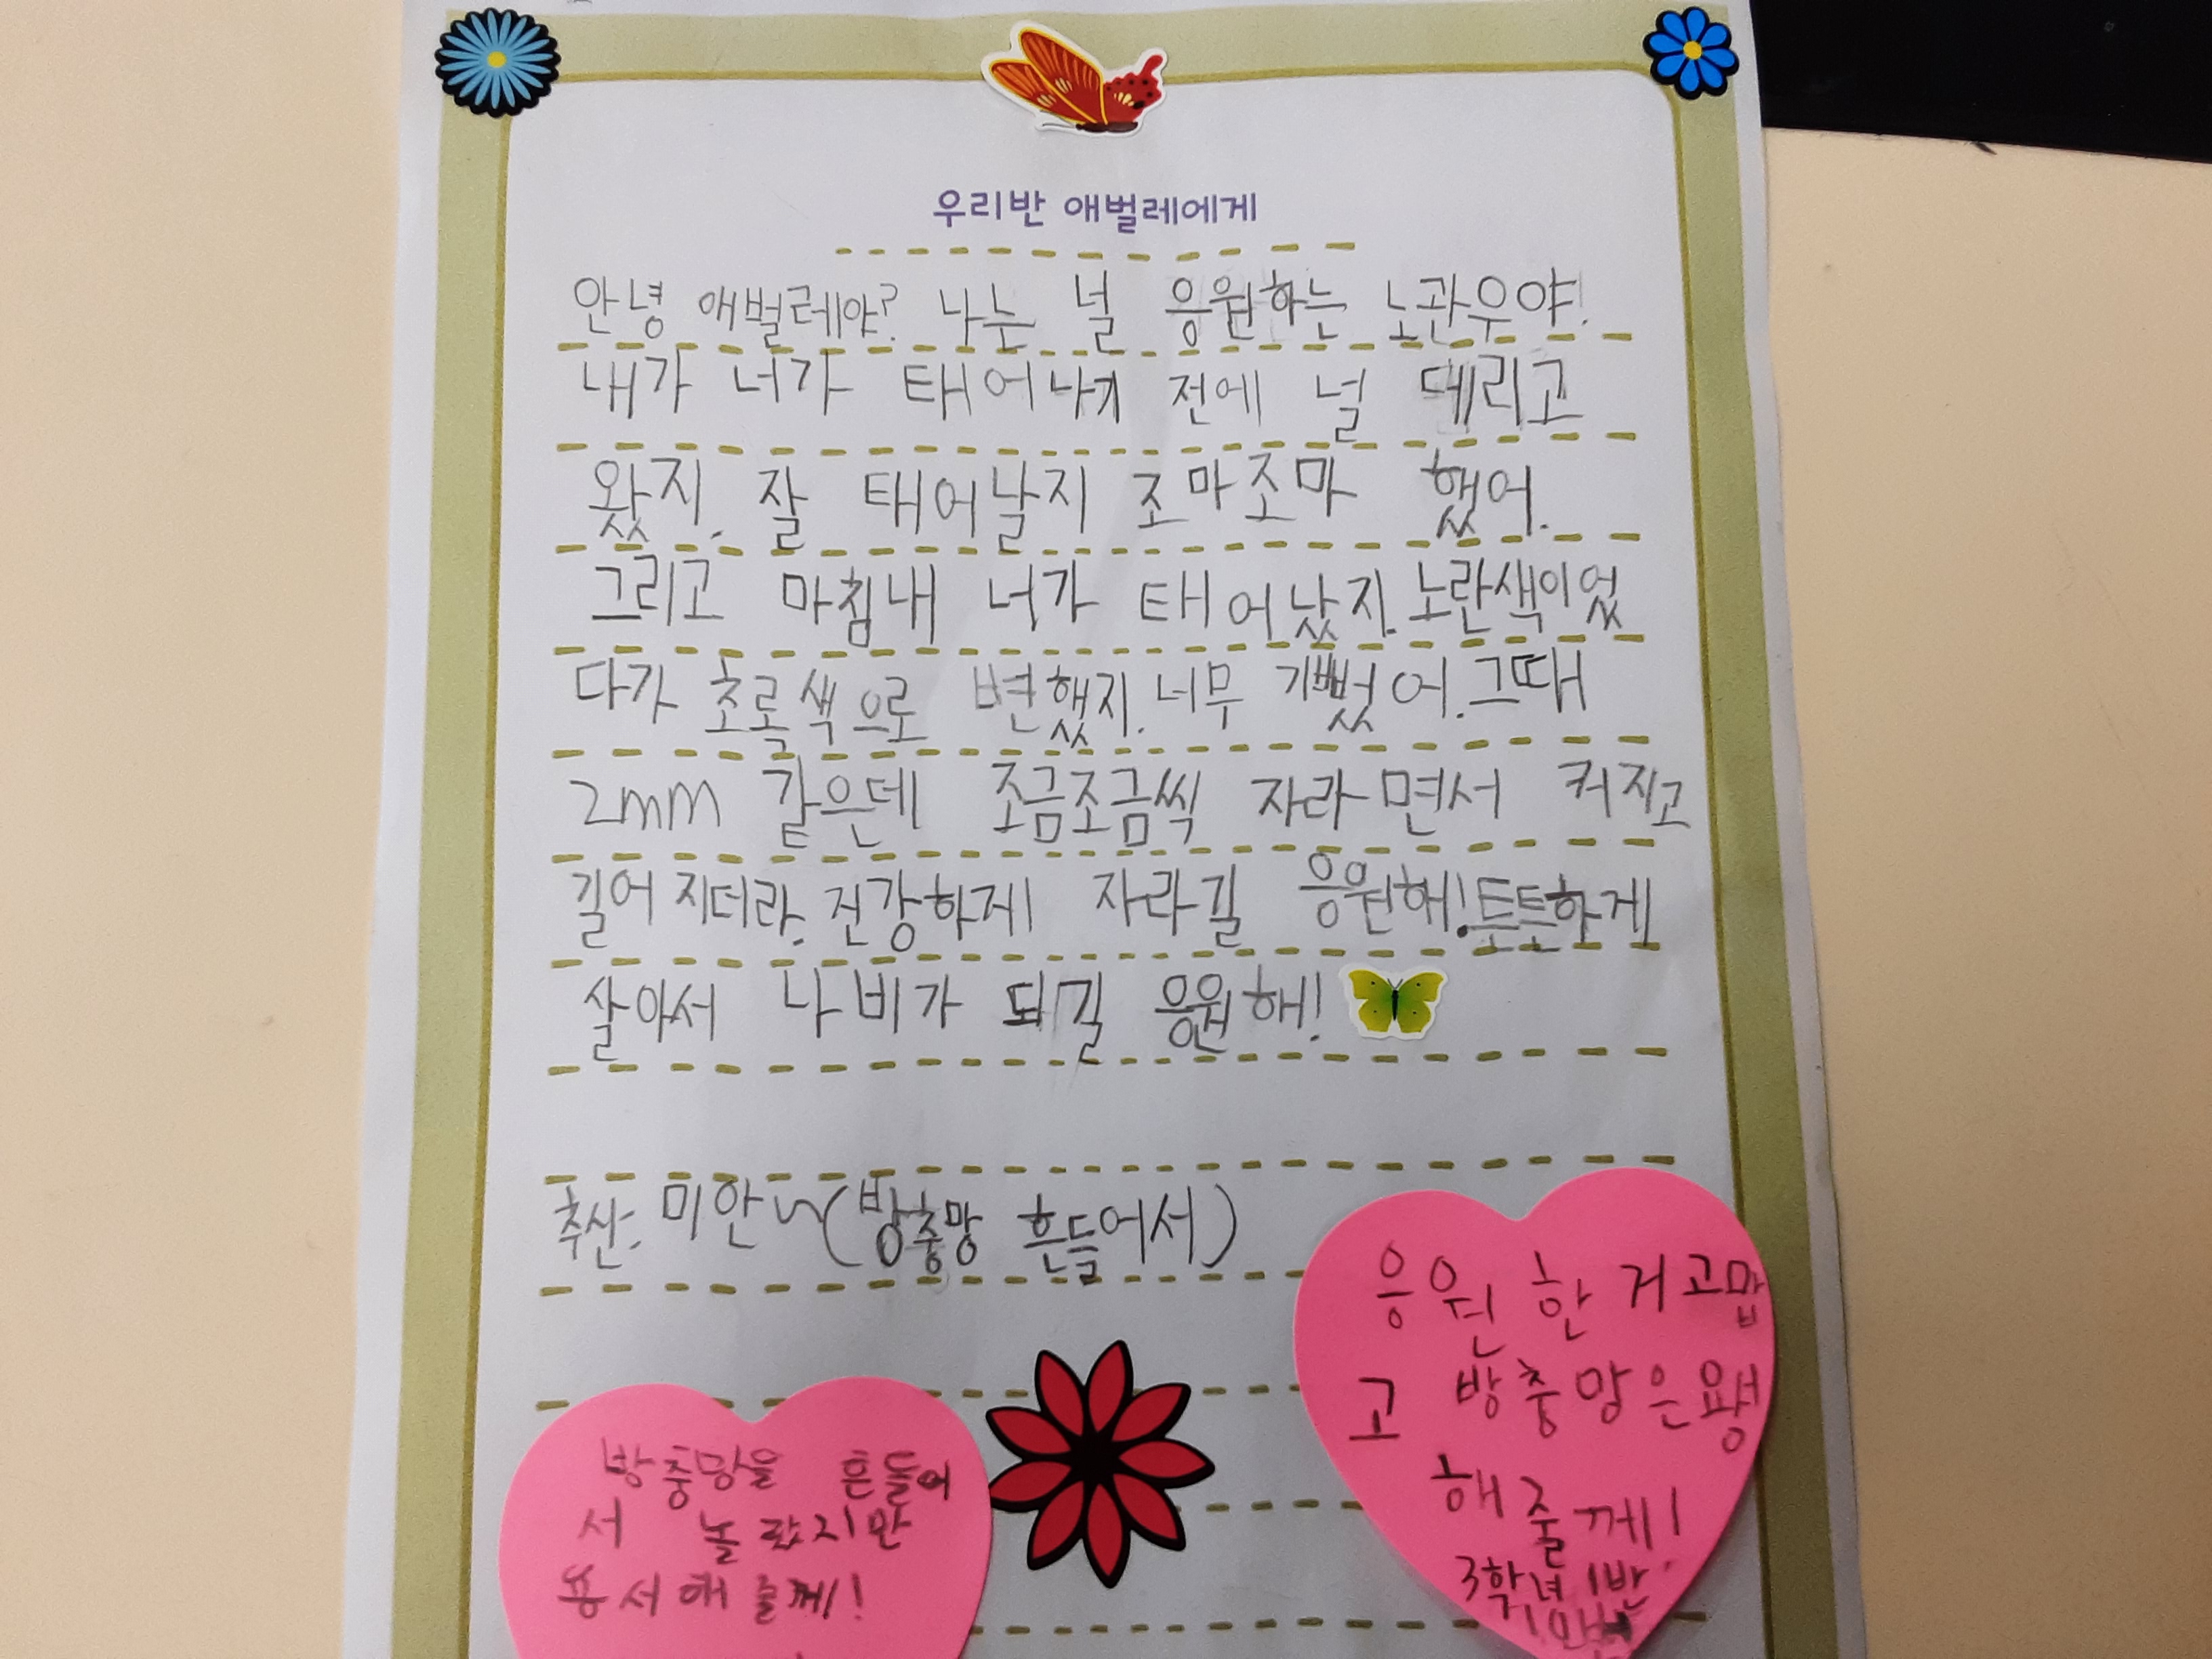 우리반 애벌레에게
안녕 애벌레야? 나는 널 응원하는 노관우야!
내가 너가 태어나기 전에 널 데리고
왔지. 잘 태어날지 조마조마 했어.
그리고 마침내 너가 태어났지. 노란색이었
다가 초록색으로 변했지. 너무 기뻤어. 그때
2mm 같은데 조금조금씩 자라면서 커지고
길어지더라. 건강하게 자라길 응원해! 튼튼하게
살아서 나비가 되길 응원해!
추신: 미안~(방충망 흔들어서)
방충망을 흔들어
서 놀랐지만
용서해 줄께!
응원한 거 고맙
고 방충망은 용서
해 줄께!
3학년 1반